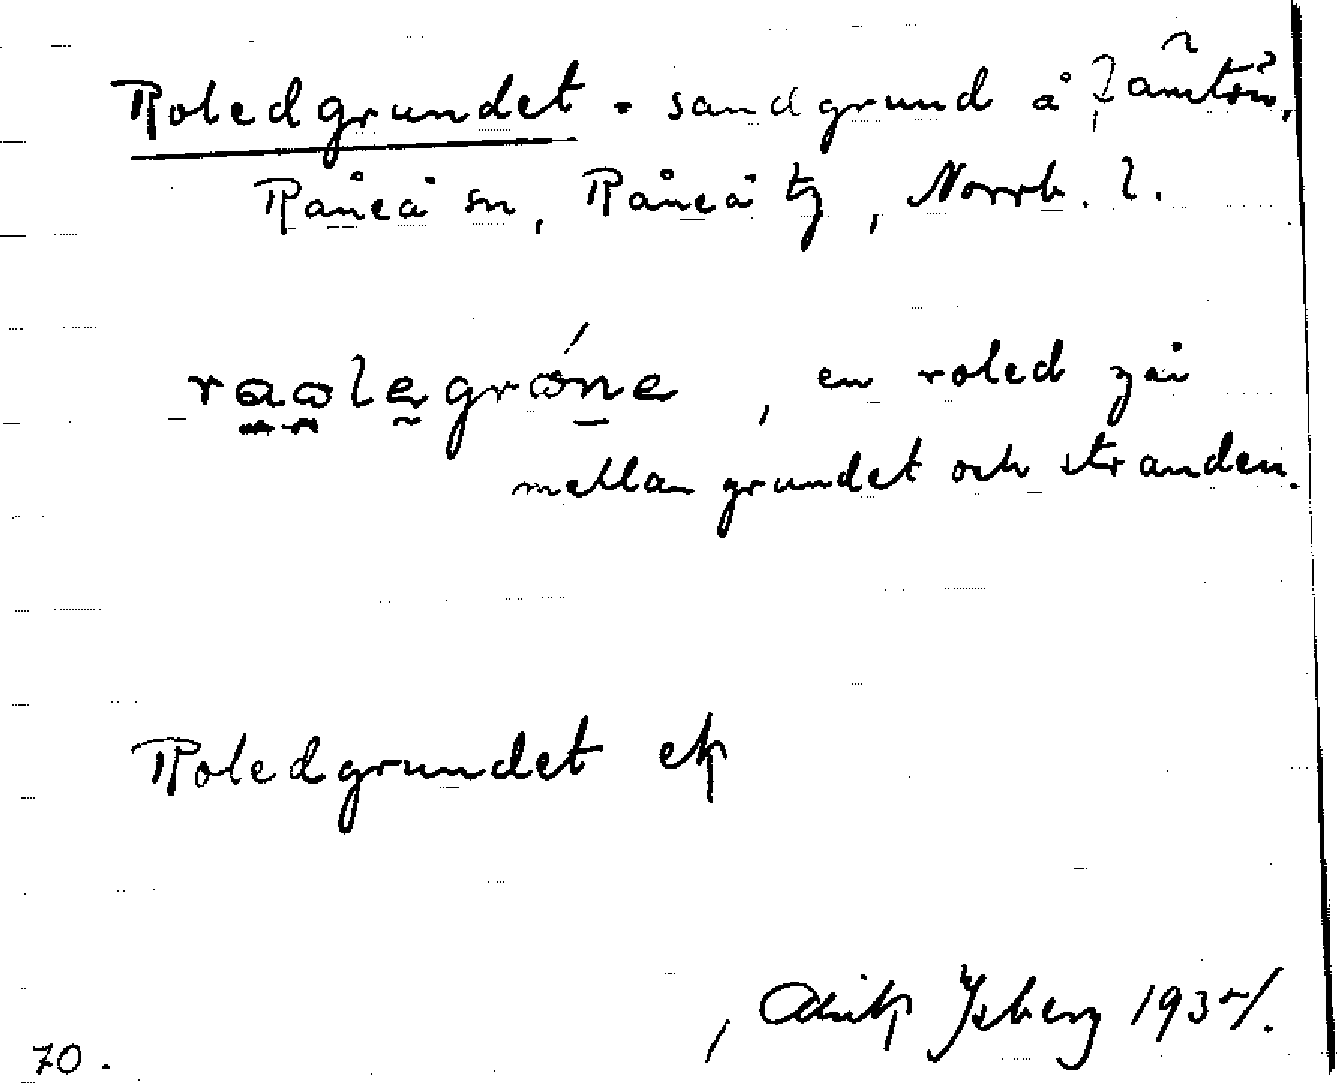 Roledgrundet . sandgrund å Jämtön,
Råneå sn, Råneå tg, Norrb. l.
raωlegrωne, en roled går
mellan grundet och stranden.
Roledgrundet ek
Isberg 193
70.